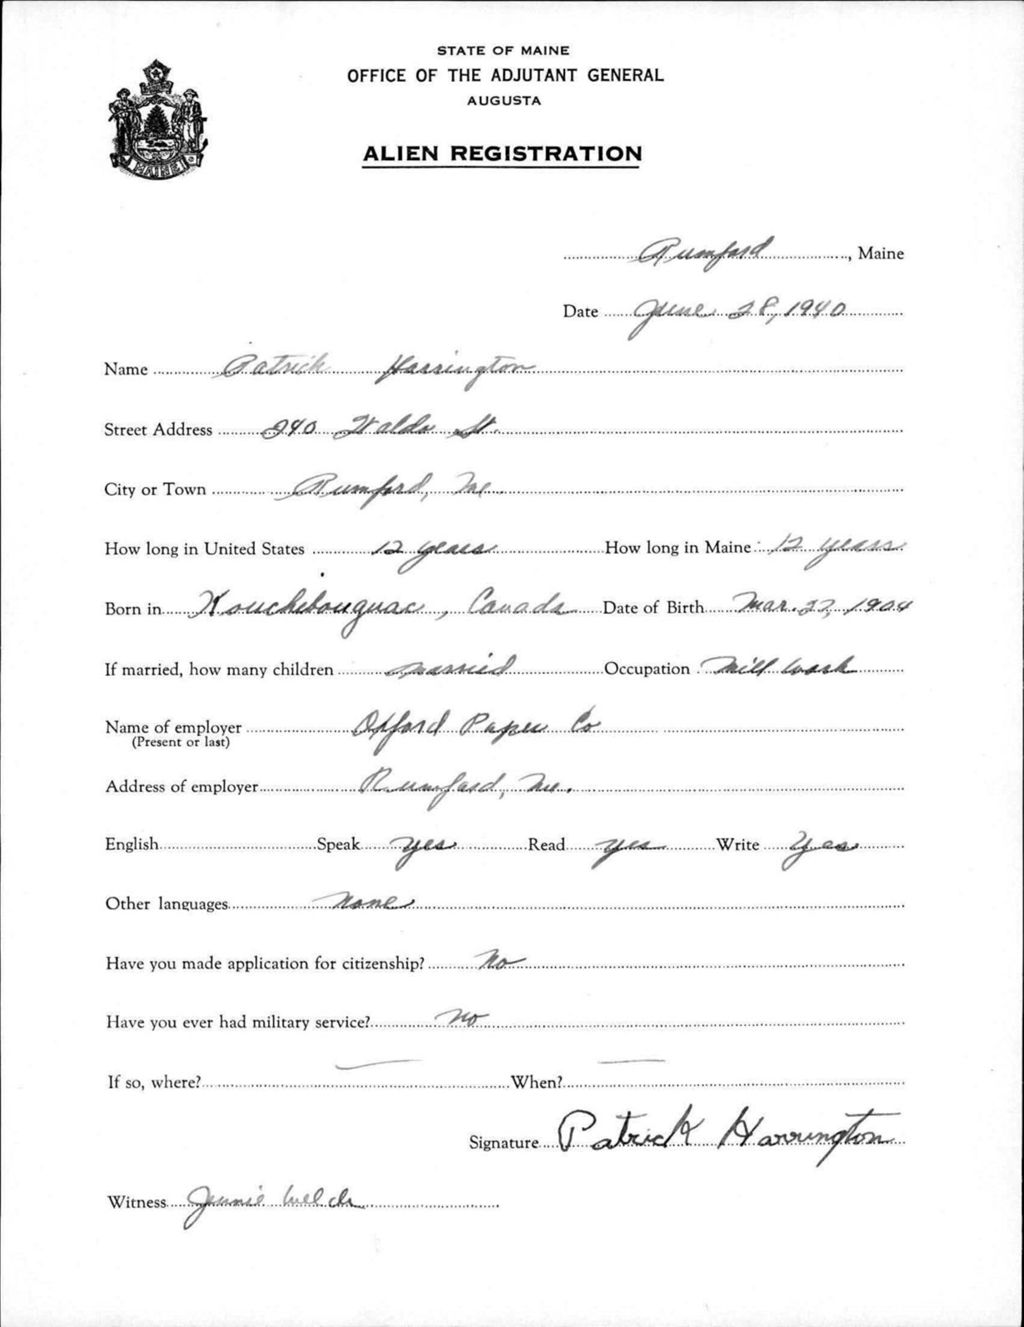 STATE OF MAINE
OFFICE OF THE ADJUTANT GENERAL
AUGUSTA
ALIEN REGISTRATION
MAINE
Rumford, Maine
Date June 28, 1940
Name Patrick Harrington
Street Address 240 Waldo St.
City or Town Rumford, Me.
How long in United States 12 years How long in Maine 12 years
Born in Kouchibouguac, Canada Date of Birth Mar. 27, 1904
If married, how many children married Occupation Mill work
Name of employer Oxford Paper Co
(Present or last)
Address of employer Rumford, Me.
English Speak yes Read yes Write Yes
Other languages None
Have you made application for citizenship? No
Have you ever had military service? No
If so, where? — When? —
Signature Patrick Harrington
Witness Jennie Welch